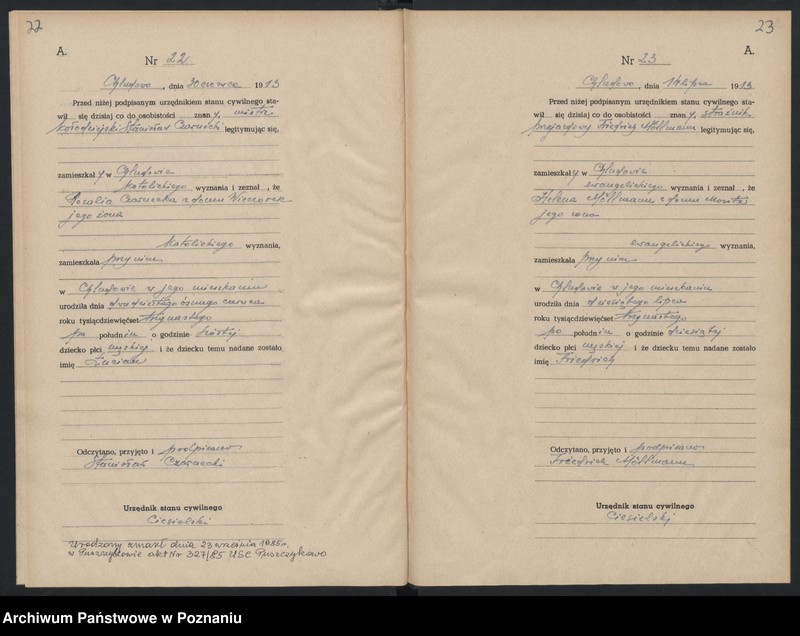 22
A.
Nr 22
, dnia 30 czerwca 1913
Przed niżej podpisanym urzędnikiem stanu cywilnego sta-
wił się dzisiaj co do osobistości znany, mistrz
kołodziejski Stanisław Czarnecki legitymując się,
zamieszkały w
katolickiego wyznania i zeznał , że
Rozalia Czarnecka z domu Wieczorek
jego żona
katolickiego wyznania,
zamieszkała przy nim
w w jego mieszkaniu
urodziła dnia dwudziestego ósmego czerwca
roku tysiącdziewięćset trzynastego
po południu o godzinie szóstej
dziecko płci męskiej i że dziecku temu nadane zostało
imię Lucian
Odczytano, przyjęto i podpisano
Stanisław Czarnecki
Urzędnik stanu cywilnego
Ciesielski
Urodzony zmarł dnia 23 września 1985 r.
w Puszczykowie akt Nr 327/85 USC Puszczykowo
23
A.
Nr 23
, dnia 14 lipca 1913
Przed niżej podpisanym urzędnikiem stanu cywilnego sta-
wił się dzisiaj co do osobistości znany, strażnik
przejazdowy Friedrich Möllmann legitymując się,
zamieszkały w
ewangelickiego wyznania i zeznał , że
Helena Möllmann z domu
jego żona
ewangelickiego wyznania,
zamieszkała przy nim
w w jego mieszkaniu
urodziła dnia dziesiątego lipca
roku tysiącdziewięćset trzynastego
po południu o godzinie dziesiątej
dziecko płci męskiej i że dziecku temu nadane zostało
imię Friedrich
Odczytano, przyjęto i podpisano
Friedrich Möllmann
Urzędnik stanu cywilnego
Ciesielski
Archiwum Państwowe w Poznaniu